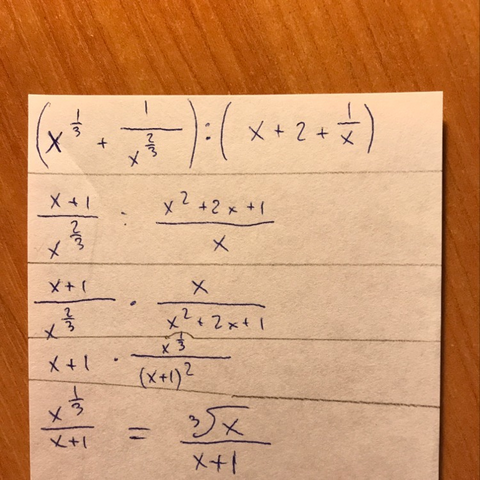 (x^(1/3) + 1/x^(2/3)) : (x + 2 + 1/x)
(x+1)/x^(2/3) : (x²+2x+1)/x
(x+1)/x^(2/3) · x/(x²+2x+1)
x+1 · x^(1/3)/(x+1)²
x^(1/3)/(x+1) = ³√x/(x+1)